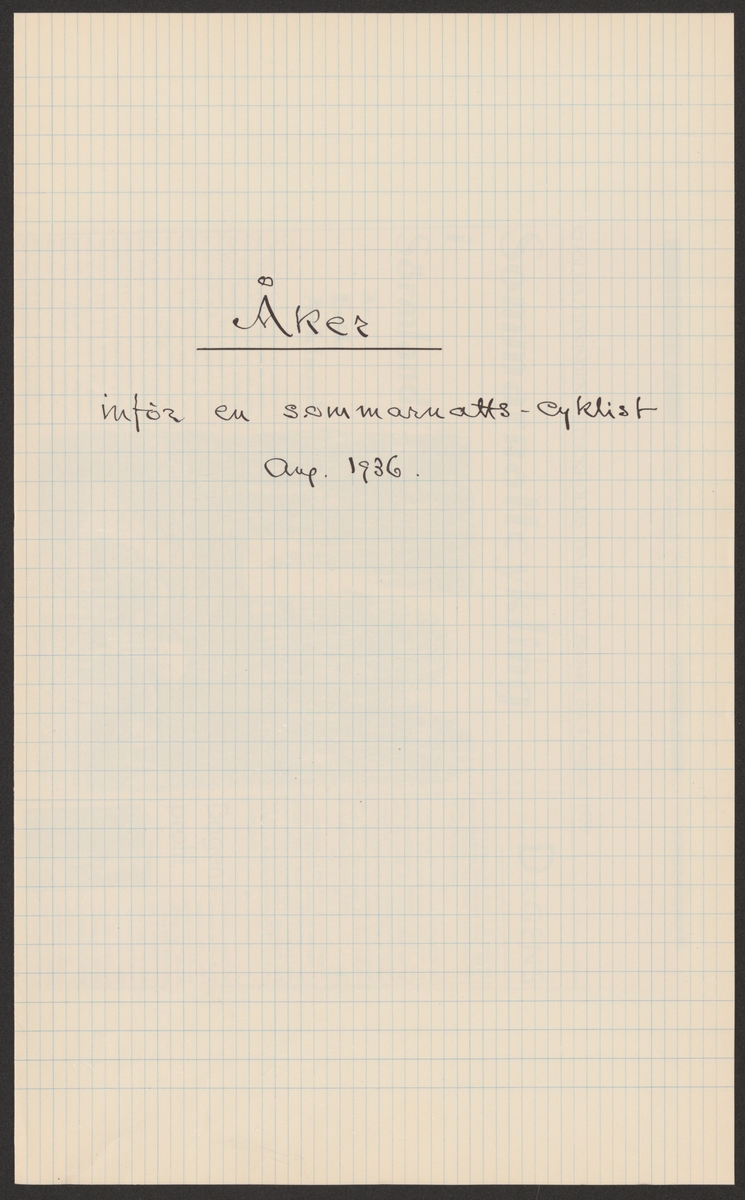 Åker
inför en sommarnatts-cyklist
Aug. 1936.